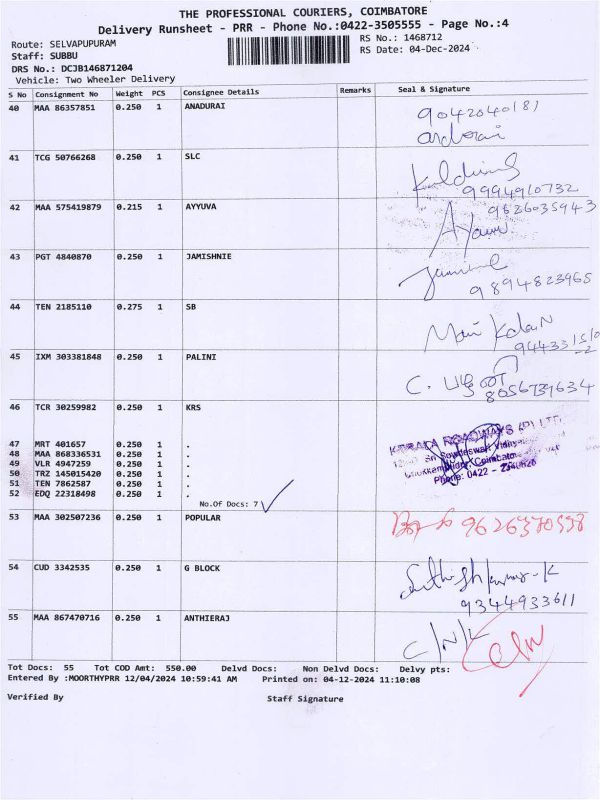 THE PROFESSIONAL COURIERS, COIMBATORE
Delivery Runsheet - PRR - Phone No.:0422-3505555 - Page No.:4
Route: SELVAPUPURAM
RS No.: 1468712
Staff: SUBBU
RS Date: 04-Dec-2024
DRS No.: DCJB146871204
Vehicle: Two Wheeler Delivery
S No Consignment No Weight PCS Consignee Details Remarks Seal & Signature
40 MAA 86357851 0.250 1 ANADURAI
9042040181
41 TCG 50766268 0.250 1 SLC
9994910732
42 MAA 575419879 0.215 1 AYYUVA
9626035943
43 PGT 4840870 0.250 1 JAMISHNIE
9894823965
44 TEN 2185110 0.275 1 SB
Mani
45 IXM 303381848 0.250 1 PALINI
C.
8056739634
46 TCR 30259982 0.250 1 KRS
ROADWAYS (P) LTD
47 MRT 401657 0.250 1 .
48 MAA 868336531 0.250 1 .
49 VLR 4947259 0.250 1 .
50 TRZ 145015420 0.250 1 .
51 TEN 7862587 0.250 1 .
52 EDQ 22318498 0.250 1 .
Phone: 0422 -
No.Of Docs: 7
53 MAA 302507236 0.250 1 POPULAR
54 CUD 3342535 0.250 1 G BLOCK
9344933611
55 MAA 867470716 0.250 1 ANTHIERAJ
C/N/K
Tot Docs: 55 Tot COD Amt: 550.00 Delvd Docs: Non Delvd Docs: Delvy pts:
Entered By :MOORTHYPRR 12/04/2024 10:59:41 AM Printed on: 04-12-2024 11:10:08
Verified By Staff Signature